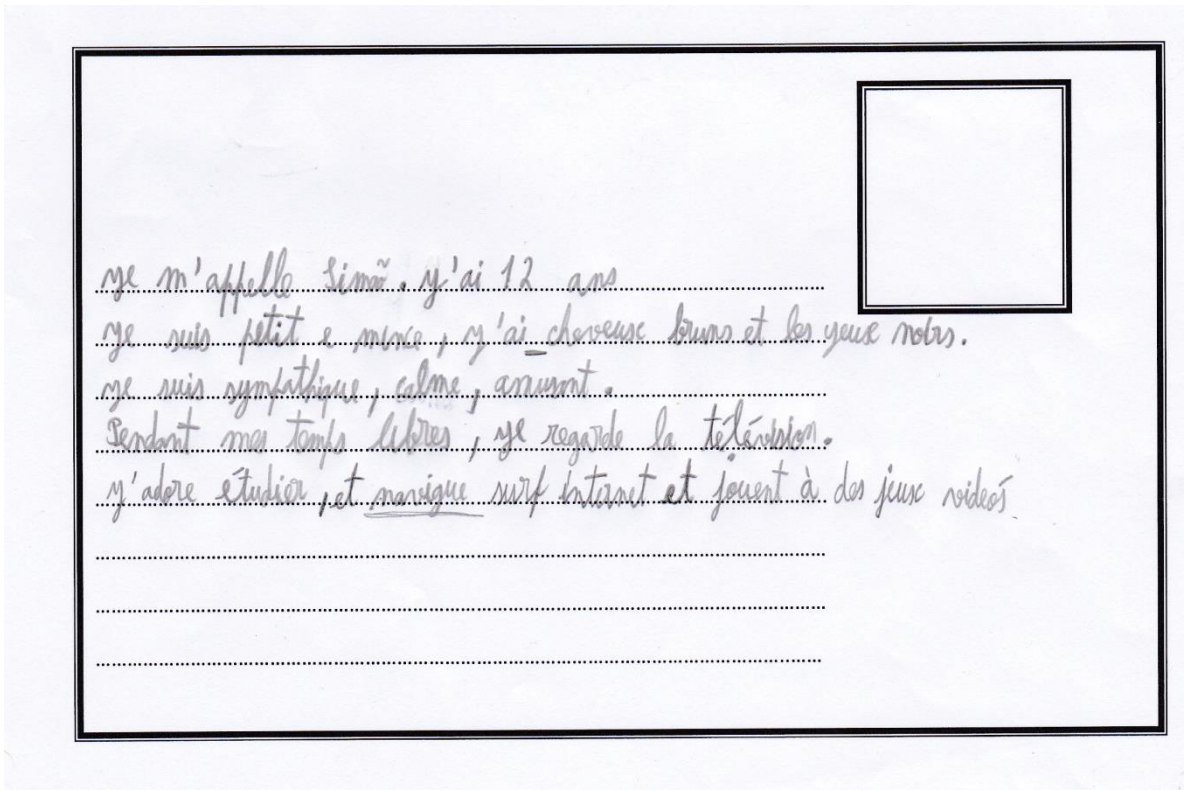 Je m'appelle Simão. J'ai 12 ans
Je suis petit e mince, j'ai cheveux bruns et les yeux noirs.
Je suis sympathique, calme, amusant.
Pendant mes temps libres, je regarde la télévision.
J'adore étudier, et navigue surf internet et jouent à des jeux videós